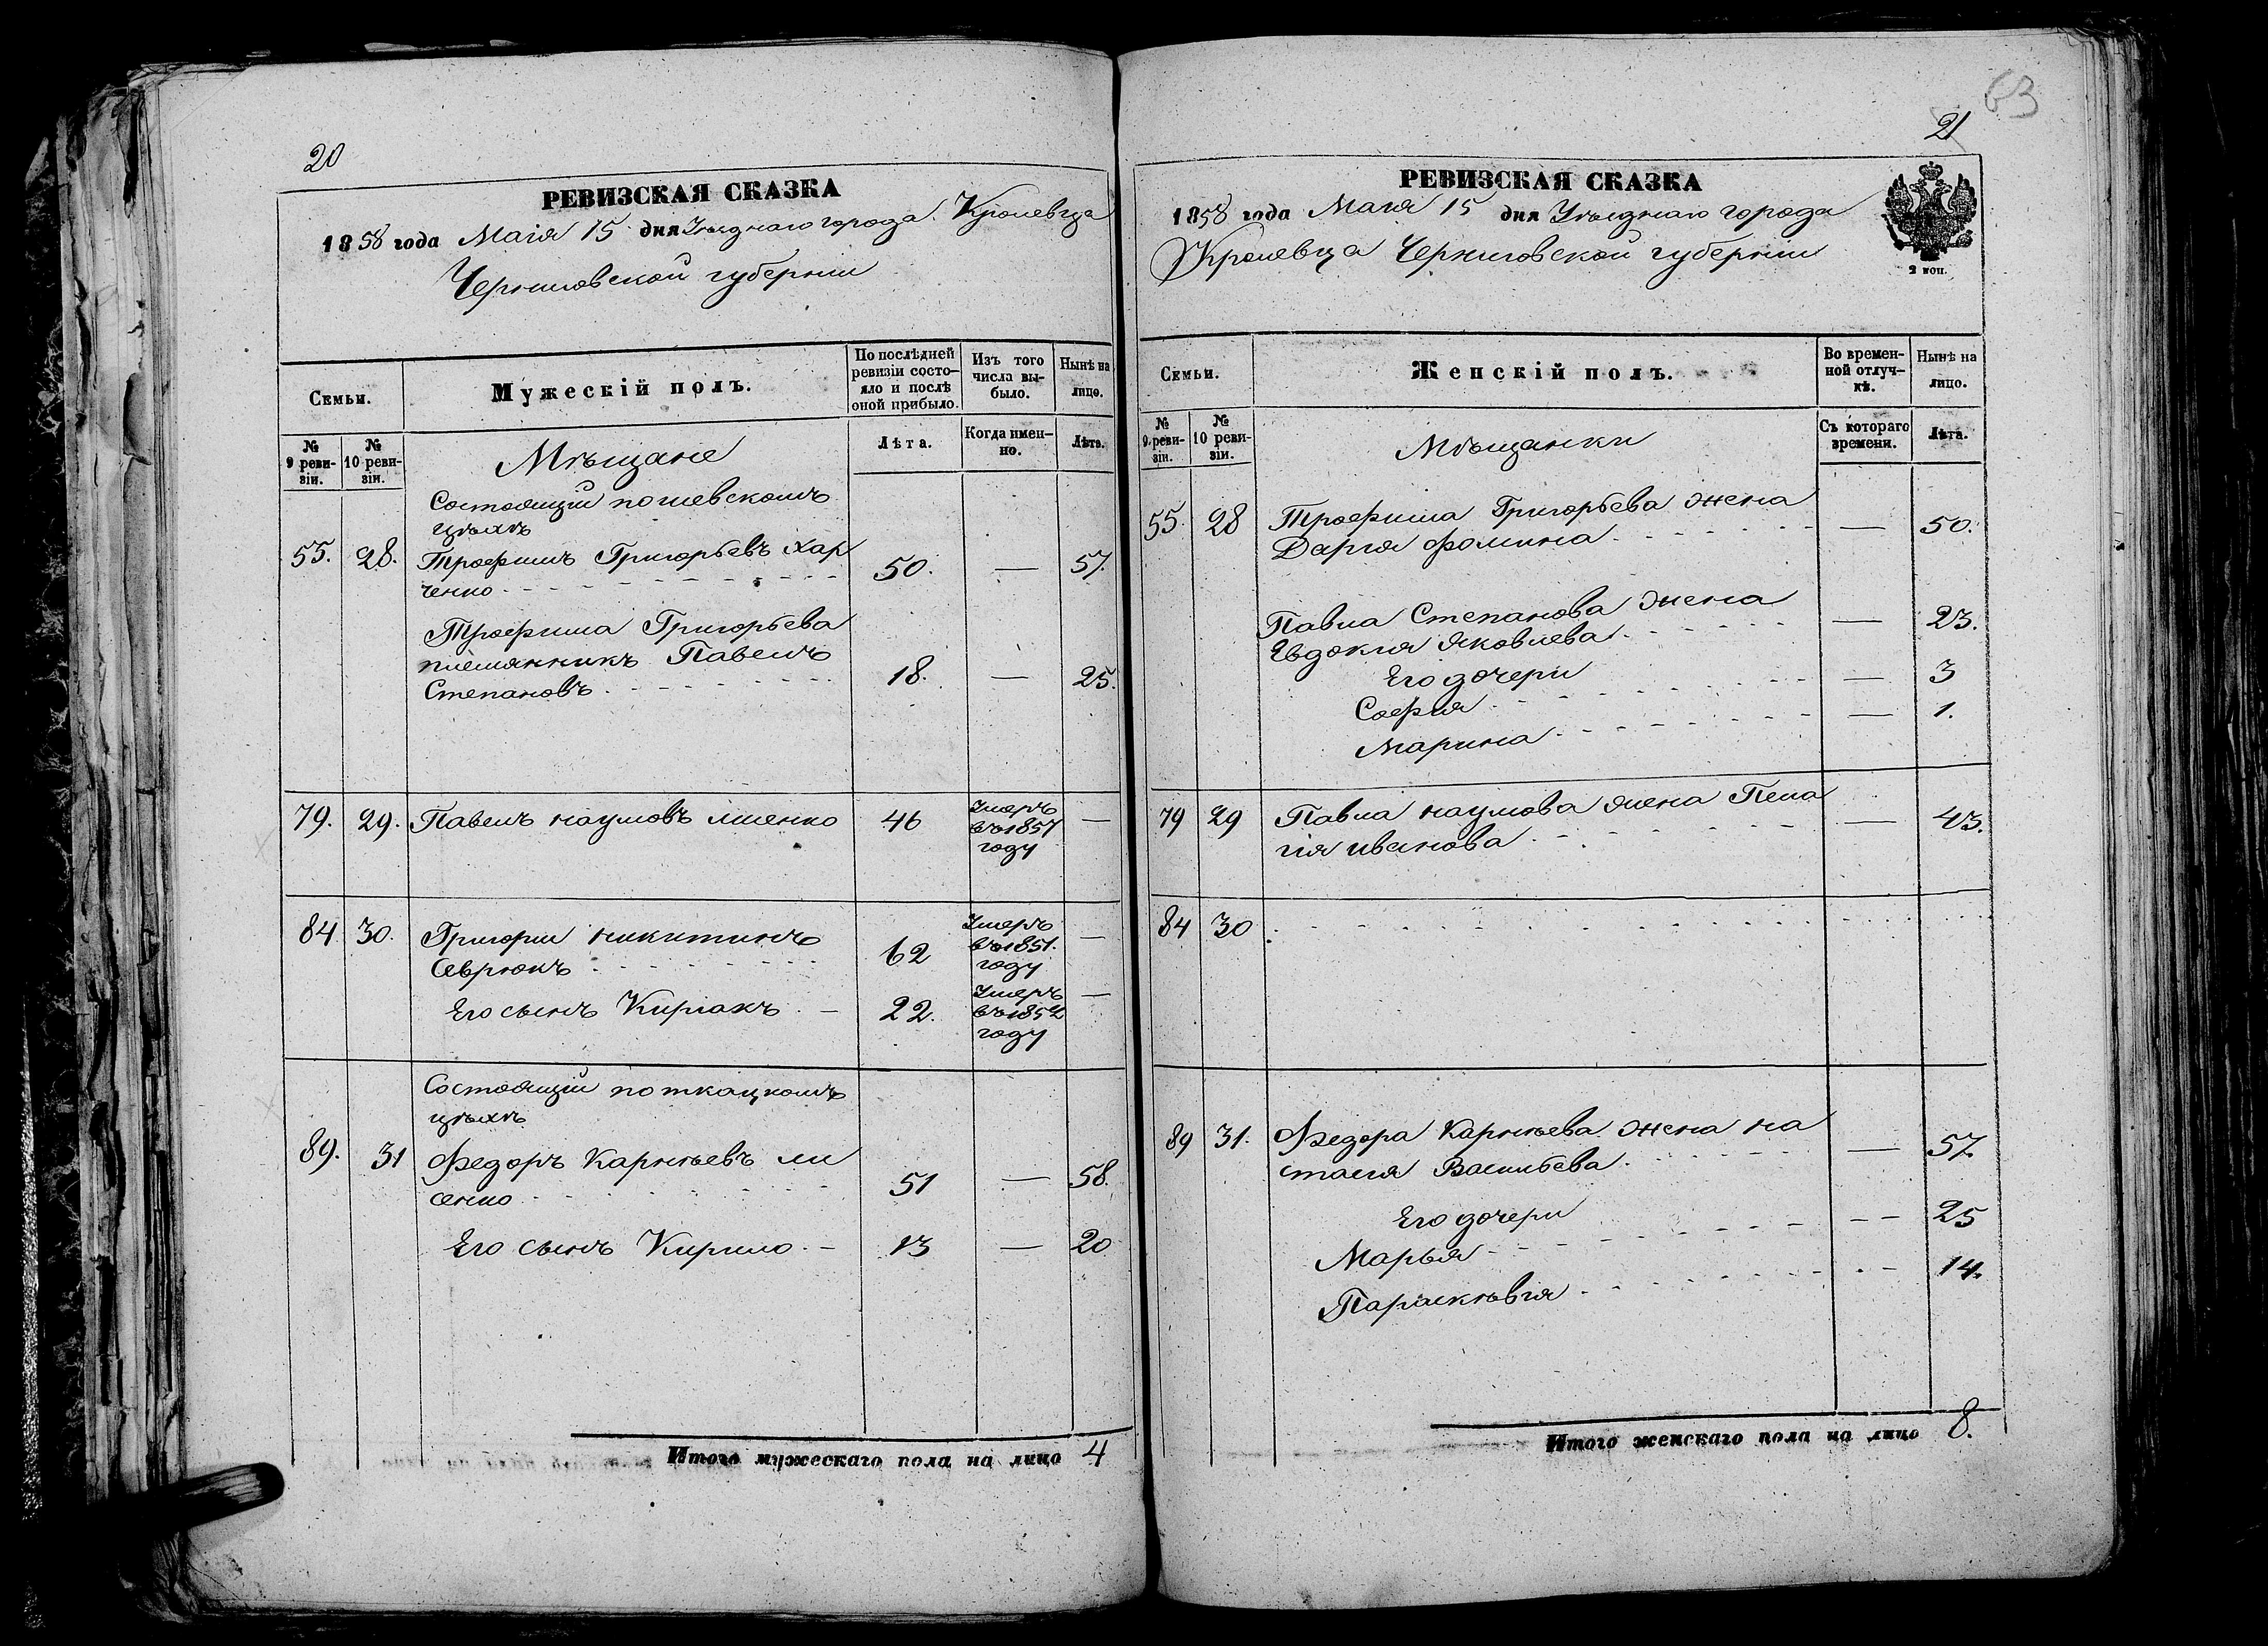 20
РЕВИЗСКАЯ СКАЗКА
1858 года Маія 15 дня Уѣзднаго города Кролевца
Черниговской губерніи
Семьи.
Мужескій полъ.
По послѣдней ревизіи состояло и послѣ оной прибыло.
Изъ того числа выбыло.
Нынѣ на лицо.
№ 9 ревизіи.
№ 10 ревизіи.
Мѣщане
Лѣта.
Когда именно.
Лѣта.
Состоящіи по шевскомъ
цѣхѣ
55. 28. Трофимъ Григорьевъ Хар
ченко 50. — 57.
Трофима Григорьева
племянникъ Павелъ
Степановъ 18. — 25.
79. 29. Павелъ Наумовъ 46 Умеръ въ 1857 году —
84 30. Григорій Никитинъ
Севрюкъ 62 Умеръ въ 1851. году —
Его сынъ Киріакъ 22. Умеръ въ 1852 году —
Состоящіи по ткацкомъ
цѣхѣ
89. 31 Федоръ Карнѣевъ Ли
сенко 51 — 58.
Его сынъ Кирило 13 — 20
Итого мужескаго пола на лицо 4
63
21
РЕВИЗСКАЯ СКАЗКА
1858 года Маія 15 дня Уѣзднаго города
Кролевца Черниговской губерніи
2 коп.
Семьи.
Женскій полъ.
Во временной отлучкѣ.
Нынѣ на лицо.
№ 9 ревизіи.
№ 10 ревизіи.
Мѣщанки
Съ котораго времени.
Лѣта.
55. 28 Трофима Григорьева жена
Дарія Фомина — 50.
Павла Степанова жена
Евдокія Яковлева — 23.
Его дочери
Софія — 3
Марина — 1.
79 29 Павла Наумова жена Пела
гія Иванова — 43.
84 30
89 31. Федора Карнѣева жена На
стасія Васильева — 57.
Его дочери
Марья — 25
Парасковія — 14.
Итого женскаго пола на лицо 8.